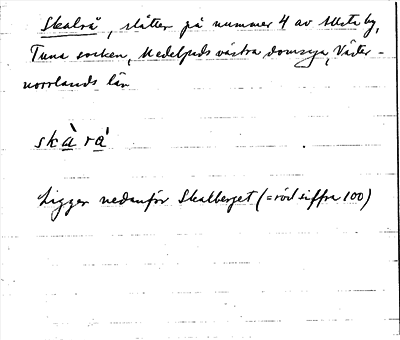 Skalrå, slåtter på nummer 4 av Allsta by,
Tuna socken, Medelpads västra domsaga, Väster-
norrlands län
skà rá
Ligger nedanför Skalberget (= röd siffra 100)